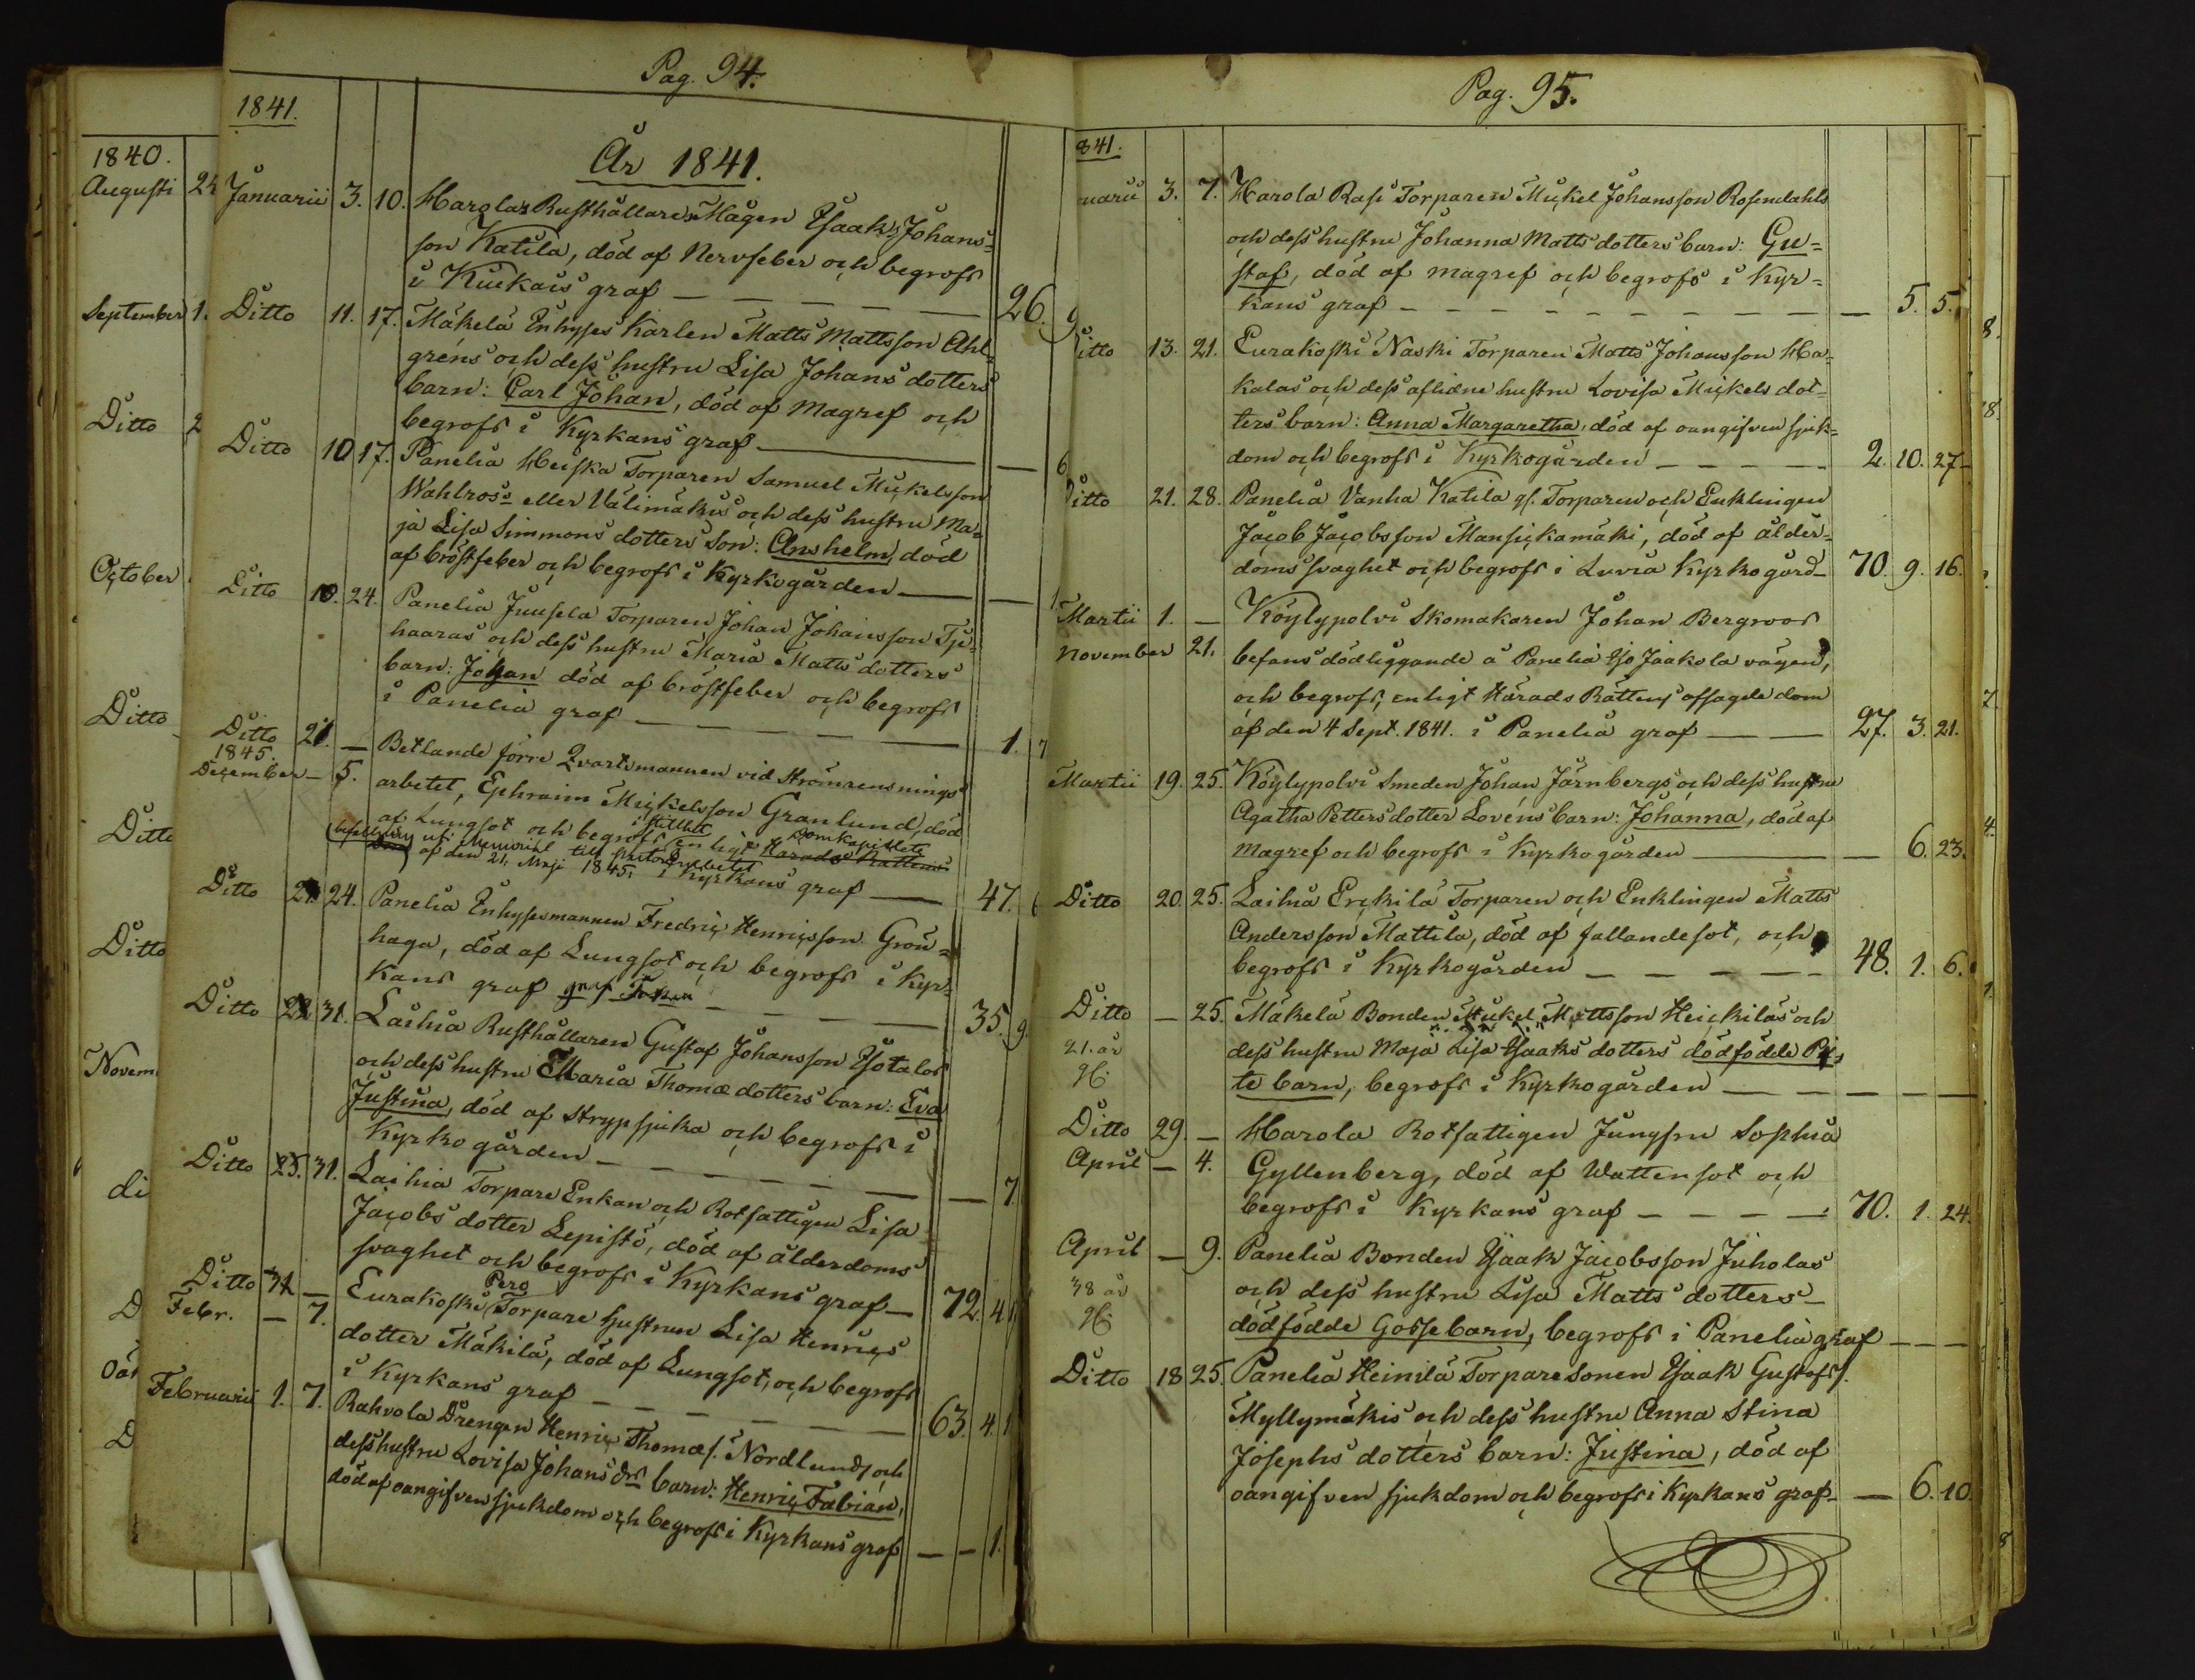 1840.
Augusti 24
September 1.
Ditto 2
October
Ditto
Ditto
Ditto
Novem
di
D
D
Pag. 94.
1841.
År 1841.
Januarii 3. 10. Harola Rusthållare Mågen Isaak Johans=
son Katila, död af Nervfeber och begrofs
i Kuckais graf — — — — 26. 9
Ditto 11. 17. Mäkelä Inhyses Karlen Matts Mattsson Ahl=
gréns och dess hustru Lisa Johans dotters
barn: Carl Johan, död af Magref och
begrofs i Kyrkans graf — — 6
Ditto 10 17. Panelia Heiska Torparen Samuel Mickelsson
Wahlroos eller Välimäkis och dess hustru Ma=
ja Lisa Simmons dotters Son: Anshelm, död
af bröstfeber och begrofs i Kyrkogården — — 1
Ditto 10. 24. Panelia Juusela Torparen Johan Johansson Tji=
haaras och dess hustru Maria Matts dotters
barn: Johan död af bröstfeber och begrofs
i Panelia graf — — — — 1. 7
Ditto 21. — Betlande förre Qvartsmannen vid Strömrensnings
1845.
December — 5. arbetet, Ephraim Mickelsson Granlund, död
af Lungsot och begrofs i stillhet enligt Domkapitlets Härads Rättens
befallning uti Memorial till Pastors Embetet
af den 21. Maji 1845. i Kyrkans graf — 47. 6
Ditto 21 24. Panelia Inhysesmannen Fredric Henricsson Grön=
haga, död af Lungsot och begrofs i Kyr=
kans graf — — — — 35. 9
Ditto 22 31. Laihia Rusthållaren Gustaf Johansson Isotalos
och dess hustru Maria Thomæ dotters barn: Eva
Justina, död af Strypsjuka och begrofs i
Kyrko gården — — — — — 7
Ditto 25. 31. Laihia Torpare Enkan och Rotfattigen Lisa
Jacobs dotter Lepistö, död af ålderdoms
svaghet och begrofs i Kyrkans graf — 72. 4
Ditto 31 — Eurakoski Pero Torpare hustrun Lisa Henrics
Febr. — 7. dotter Mäkilä, död af Lungsot, och begrofs
i Kyrkans graf — — — — 63. 4. 1
Februarii 1. 7. Rahvola Drengen Henric Thomæs. Nordlunds och
dess hustru Lovisa Johans drs barn: Henric Fabian,
död af oangifven sjukdom och begrofs i Kyrkans graf — — 1.
Pag. 95.
841.
uarii 3. 7. Harola Rasi Torparen Mickel Johansson Rosendahls
och dess hustru Johanna Matts dotters barn: Gu=
staf, död af magref och begrofs i Kyr=
kans graf — — — — — 5. 5.
Ditto 13. 21. Eurakoski Naski Torparen Matts Johansson Ha=
kalas och dess aflidne hustru Lovisa Mickels dot=
ters barn: Anna Margaretha, död af oangifven sjuk=
dom och begrofs i Kyrkogården — — — 2. 10. 27
Ditto 21. 28. Panelia Vanha Katila gl. Torparen och Enklingen
Jacob Jacobsson Mansickamäki, död af ålder=
doms svaghet och begrofs i Luvia Kyrko gård — 70. 9. 16.
Martii 1. — Köylypolvi Skomakaren Johan Bergroos
November 21. befans död liggande å Panelia Iso Jaakola vägen,
och begrofs, enligt Härads Rättens afsagde dom
af den 4 Sept. 1841. i Panelia graf — — 27. 3. 21.
Martii 19. 25. Köylypolvi Smeden Johan Järnbergs och dess hustru
Agatha Petters dotter Lovéns barn: Johanna, död af
magref och begrofs i Kyrko gården — — 6. 23.
Ditto 20. 25. Laihia Erckilä Torparen och Enklingen Matts
Andersson Mattila, död af fallandesot, och
begrofs i Kyrkogården — — — — 48. 1. 6.
Ditto — 25. Mäkelä Bonden Mickel Mattsson Heickiläs och
21. år dess hustru Maja Lisa Isaaks dotters dödfödde Pi=
te barn, begrofs i Kyrkogården — — — —
Ditto 29. — Harola Rotfattigen Jungfru Sophia
April — 4. Gyllenberg, död af Wattensot och
begrofs i Kyrkans graf — — — — 70. 1. 24.
April — 9. Panelia Bonden Isaak Jacobsson Juholas
38 år och dess hustru Lisa Matts dotters
dödfödde Gosse barn, begrofs i Panelia graf — — —
Ditto 18 25. Panelia Heinilä Torpare Sonen Isaak Gustafs.
Myllymäkis och dess hustru Anna Stina
Josephs dotters barn: Justina, död af
oangifven sjukdom och begrofs i Kyrkans graf — — 6. 10